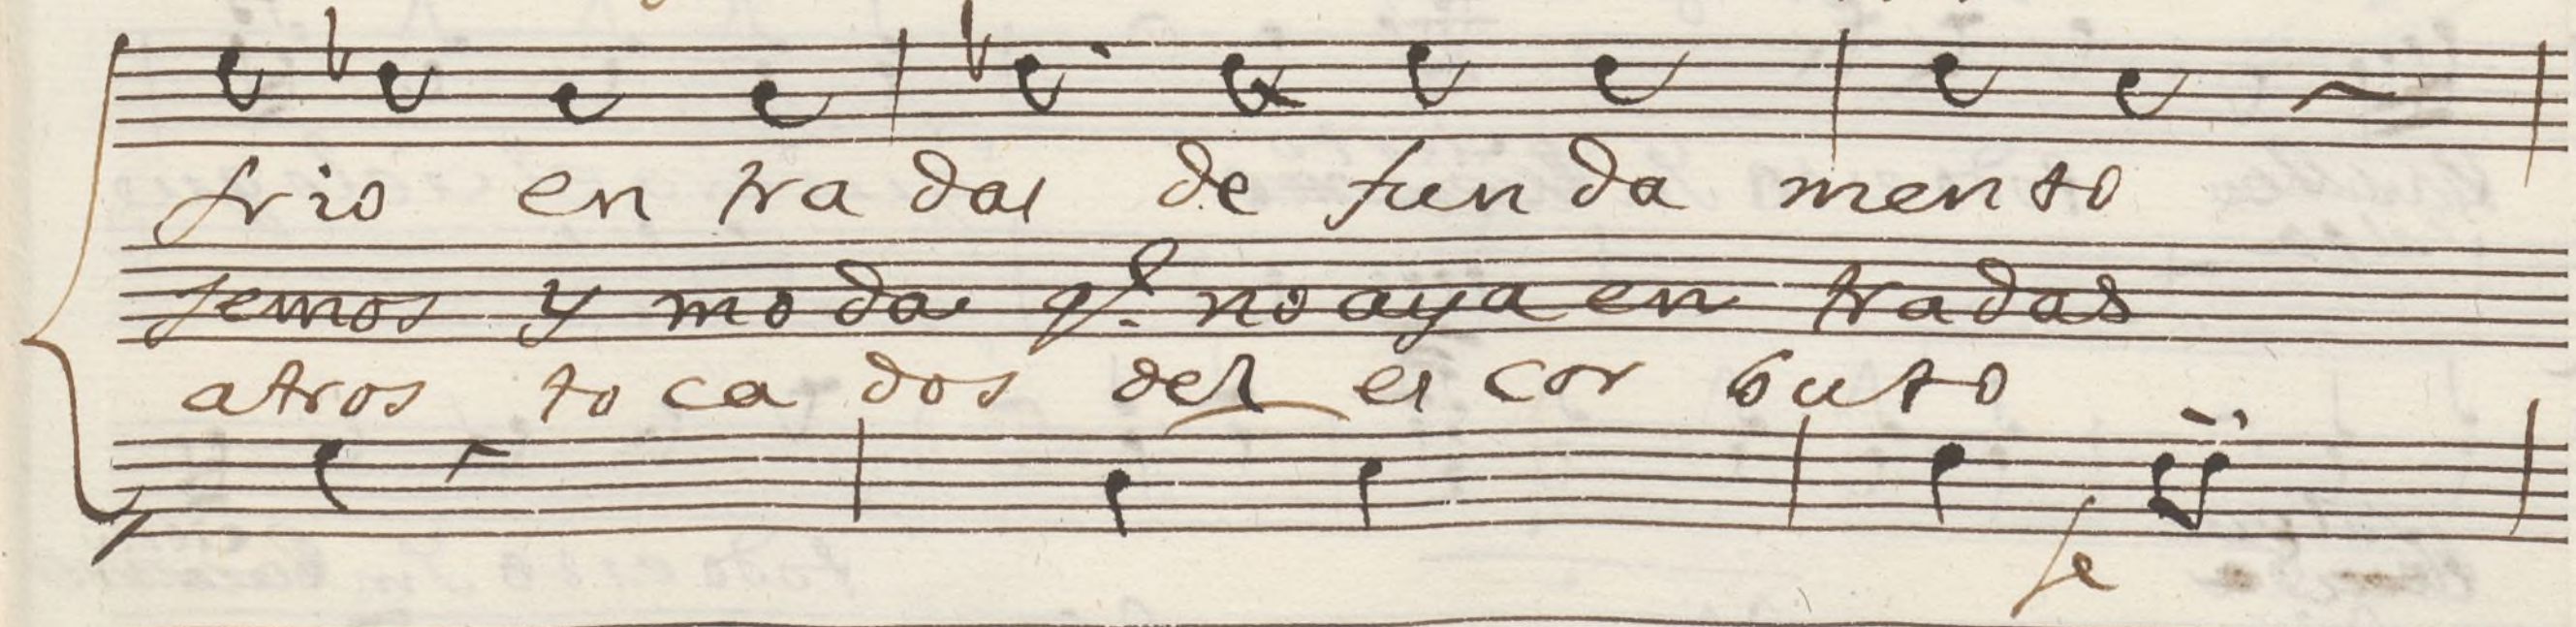 frio en tra das de fun da men to
semos y mo da q.e no aya en tradas
atros to ca dos del es cor buto
fe